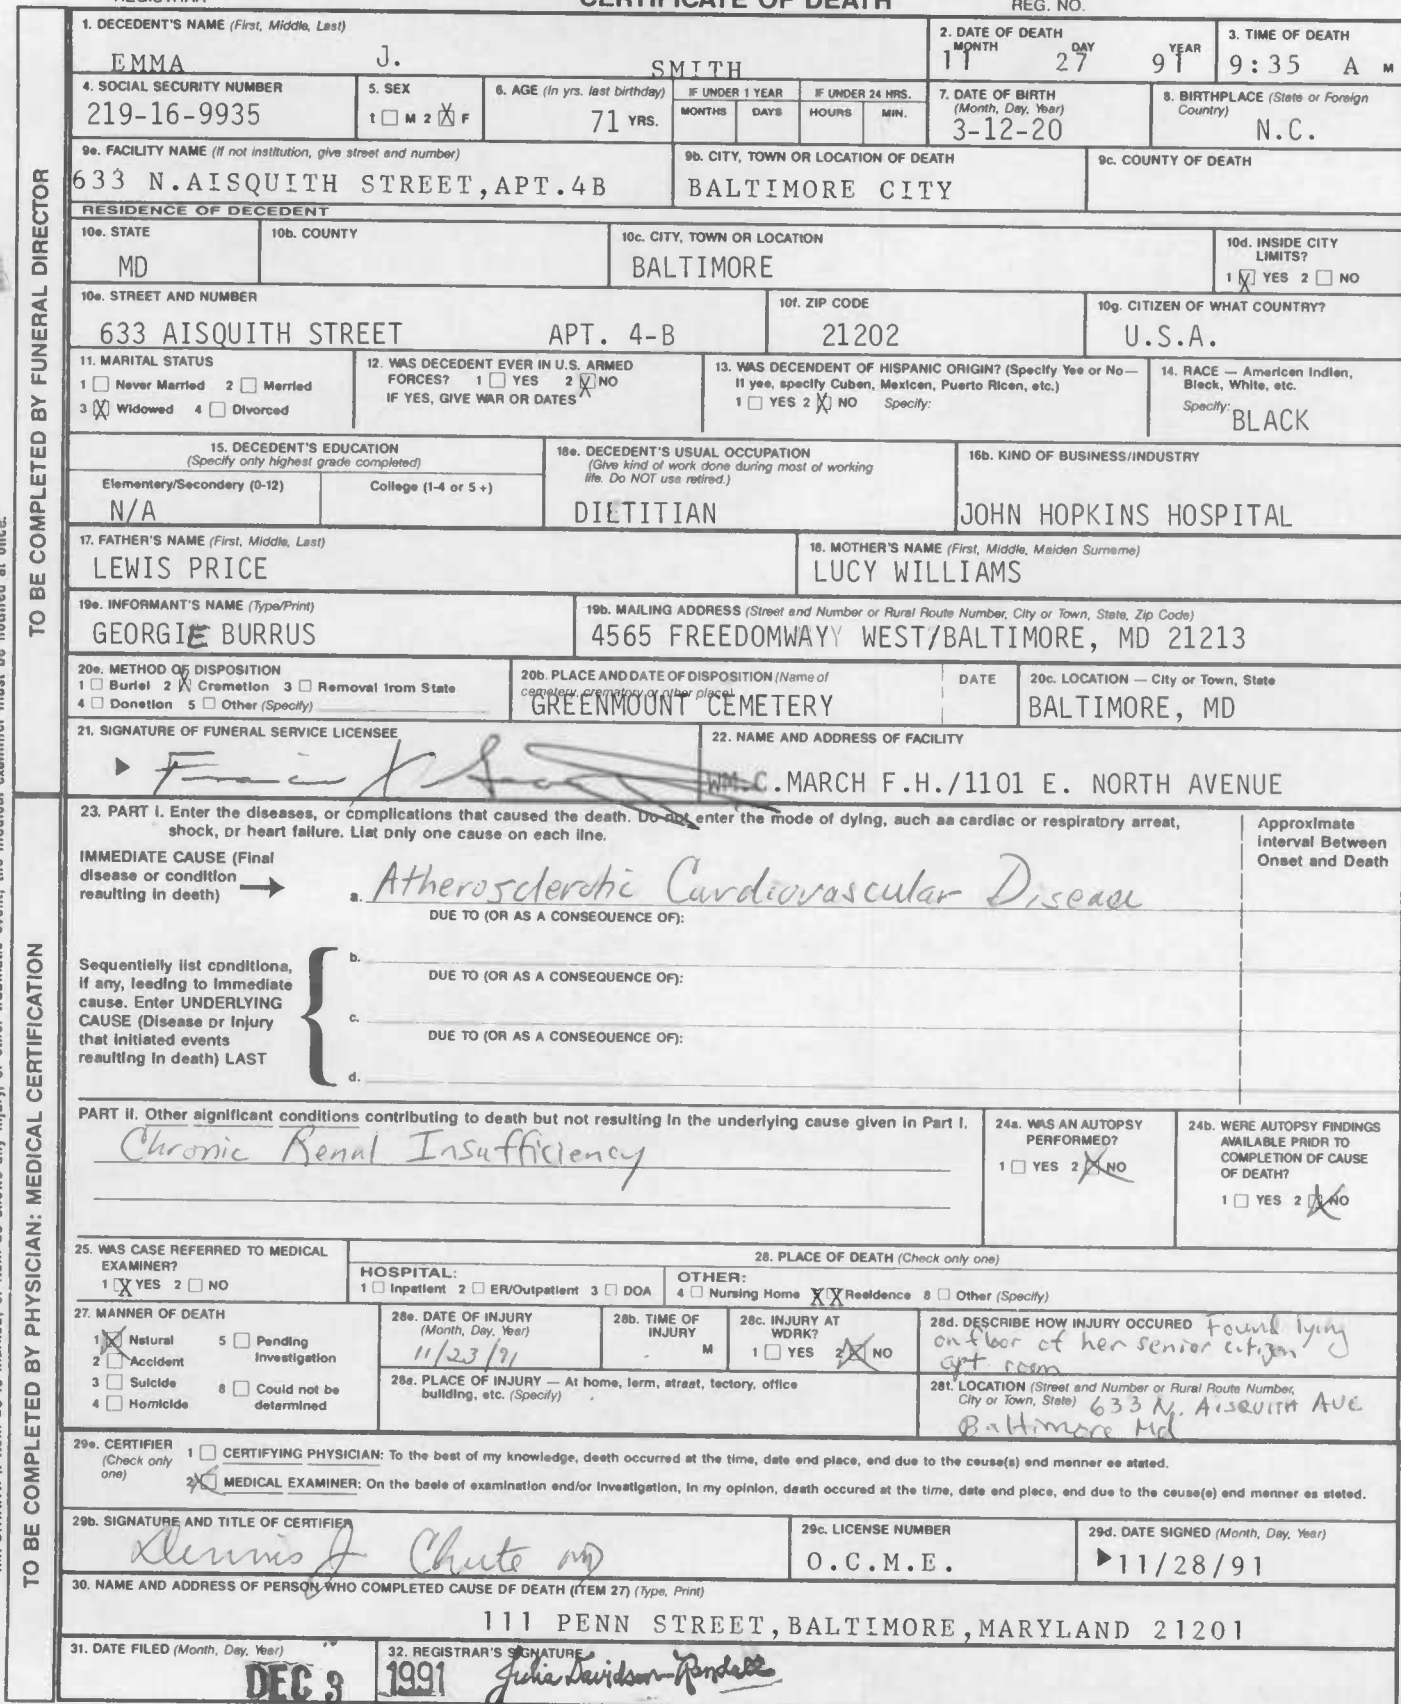 REGISTRAR CERTIFICATE OF DEATH REG. NO.
TO BE COMPLETED BY FUNERAL DIRECTOR
1. DECEDENT'S NAME (First, Middle, Last)
EMMA J. SMITH
2. DATE OF DEATH
MONTH DAY YEAR
11 27 91
3. TIME OF DEATH
9:35 A M
4. SOCIAL SECURITY NUMBER
219-16-9935
5. SEX
1 ☐ M 2 ☒ F
6. AGE (In yrs. last birthday)
71 YRS.
IF UNDER 1 YEAR
MONTHS DAYS
IF UNDER 24 HRS.
HOURS MIN.
7. DATE OF BIRTH
(Month, Day, Year)
3-12-20
8. BIRTHPLACE (State or Foreign
Country)
N.C.
9a. FACILITY NAME (If not institution, give street and number)
633 N.AISQUITH STREET,APT.4B
9b. CITY, TOWN OR LOCATION OF DEATH
BALTIMORE CITY
9c. COUNTY OF DEATH
RESIDENCE OF DECEDENT
10a. STATE
MD
10b. COUNTY
10c. CITY, TOWN OR LOCATION
BALTIMORE
10d. INSIDE CITY
LIMITS?
1 ☒ YES 2 ☐ NO
10e. STREET AND NUMBER
633 AISQUITH STREET APT. 4-B
10f. ZIP CODE
21202
10g. CITIZEN OF WHAT COUNTRY?
U.S.A.
11. MARITAL STATUS
1 ☐ Never Married 2 ☐ Married
3 ☒ Widowed 4 ☐ Divorced
12. WAS DECEDENT EVER IN U.S. ARMED
FORCES? 1 ☐ YES 2 ☒ NO
IF YES, GIVE WAR OR DATES
13. WAS DECENDENT OF HISPANIC ORIGIN? (Specify Yes or No—
If yes, specify Cuban, Mexican, Puerto Rican, etc.)
1 ☐ YES 2 ☒ NO Specify:
14. RACE — American Indian,
Black, White, etc.
Specify: BLACK
15. DECEDENT'S EDUCATION
(Specify only highest grade completed)
Elementary/Secondary (0-12) College (1-4 or 5+)
N/A
16a. DECEDENT'S USUAL OCCUPATION
(Give kind of work done during most of working
life. Do NOT use retired.)
DIETITIAN
16b. KIND OF BUSINESS/INDUSTRY
JOHN HOPKINS HOSPITAL
17. FATHER'S NAME (First, Middle, Last)
LEWIS PRICE
18. MOTHER'S NAME (First, Middle, Maiden Surname)
LUCY WILLIAMS
19a. INFORMANT'S NAME (Type/Print)
GEORGIE BURRUS
19b. MAILING ADDRESS (Street and Number or Rural Route Number, City or Town, State, Zip Code)
4565 FREEDOMWAY WEST/BALTIMORE, MD 21213
20a. METHOD OF DISPOSITION
1 ☐ Burial 2 ☒ Cremation 3 ☐ Removal from State
4 ☐ Donation 5 ☐ Other (Specify)
20b. PLACE AND DATE OF DISPOSITION (Name of
cemetery, crematory or other place)
GREENMOUNT CEMETERY
DATE
20c. LOCATION — City or Town, State
BALTIMORE, MD
21. SIGNATURE OF FUNERAL SERVICE LICENSEE
22. NAME AND ADDRESS OF FACILITY
WM.C.MARCH F.H./1101 E. NORTH AVENUE
TO BE COMPLETED BY PHYSICIAN: MEDICAL CERTIFICATION
23. PART I. Enter the diseases, or complications that caused the death. Do not enter the mode of dying, such as cardiac or respiratory arrest,
shock, or heart failure. List only one cause on each line.
Approximate
Interval Between
Onset and Death
IMMEDIATE CAUSE (Final
disease or condition
resulting in death)
a. Atherosclerotic Cardiovascular Disease
DUE TO (OR AS A CONSEQUENCE OF):
Sequentially list conditions,
if any, leading to immediate
cause. Enter UNDERLYING
CAUSE (Disease or Injury
that initiated events
resulting in death) LAST
b.
DUE TO (OR AS A CONSEQUENCE OF):
c.
DUE TO (OR AS A CONSEQUENCE OF):
d.
PART II. Other significant conditions contributing to death but not resulting in the underlying cause given in Part I.
Chronic Renal Insufficiency
24a. WAS AN AUTOPSY
PERFORMED?
1 ☐ YES 2 ☒ NO
24b. WERE AUTOPSY FINDINGS
AVAILABLE PRIOR TO
COMPLETION OF CAUSE
OF DEATH?
1 ☐ YES 2 ☒ NO
25. WAS CASE REFERRED TO MEDICAL
EXAMINER?
1 ☒ YES 2 ☐ NO
26. PLACE OF DEATH (Check only one)
HOSPITAL:
1 ☐ Inpatient 2 ☐ ER/Outpatient 3 ☐ DOA
OTHER:
4 ☐ Nursing Home XX Residence 6 ☐ Other (Specify)
27. MANNER OF DEATH
1 ☒ Natural 5 ☐ Pending
Investigation
2 ☐ Accident
3 ☐ Suicide 6 ☐ Could not be
determined
4 ☐ Homicide
28a. DATE OF INJURY
(Month, Day, Year)
11/23/91
28b. TIME OF
INJURY
M
28c. INJURY AT
WORK?
1 ☐ YES 2 ☒ NO
28d. DESCRIBE HOW INJURY OCCURED Found lying
on floor of her senior citizen
apt. room
28e. PLACE OF INJURY — At home, farm, street, factory, office
building, etc. (Specify)
28f. LOCATION (Street and Number or Rural Route Number,
City or Town, State) 633 N. AISQUITH AVE
Baltimore Md
29a. CERTIFIER
(Check only
one)
1 ☐ CERTIFYING PHYSICIAN: To the best of my knowledge, death occurred at the time, date and place, and due to the cause(s) and manner as stated.
2 ☒ MEDICAL EXAMINER: On the basis of examination and/or investigation, in my opinion, death occured at the time, date and place, and due to the cause(s) and manner as stated.
29b. SIGNATURE AND TITLE OF CERTIFIER
Dennis J Chute MD
29c. LICENSE NUMBER
O.C.M.E.
29d. DATE SIGNED (Month, Day, Year)
11/28/91
30. NAME AND ADDRESS OF PERSON WHO COMPLETED CAUSE OF DEATH (ITEM 27) (Type, Print)
111 PENN STREET,BALTIMORE,MARYLAND 21201
31. DATE FILED (Month, Day, Year)
DEC 3 1991
32. REGISTRAR'S SIGNATURE
Julia Davidson-Randall